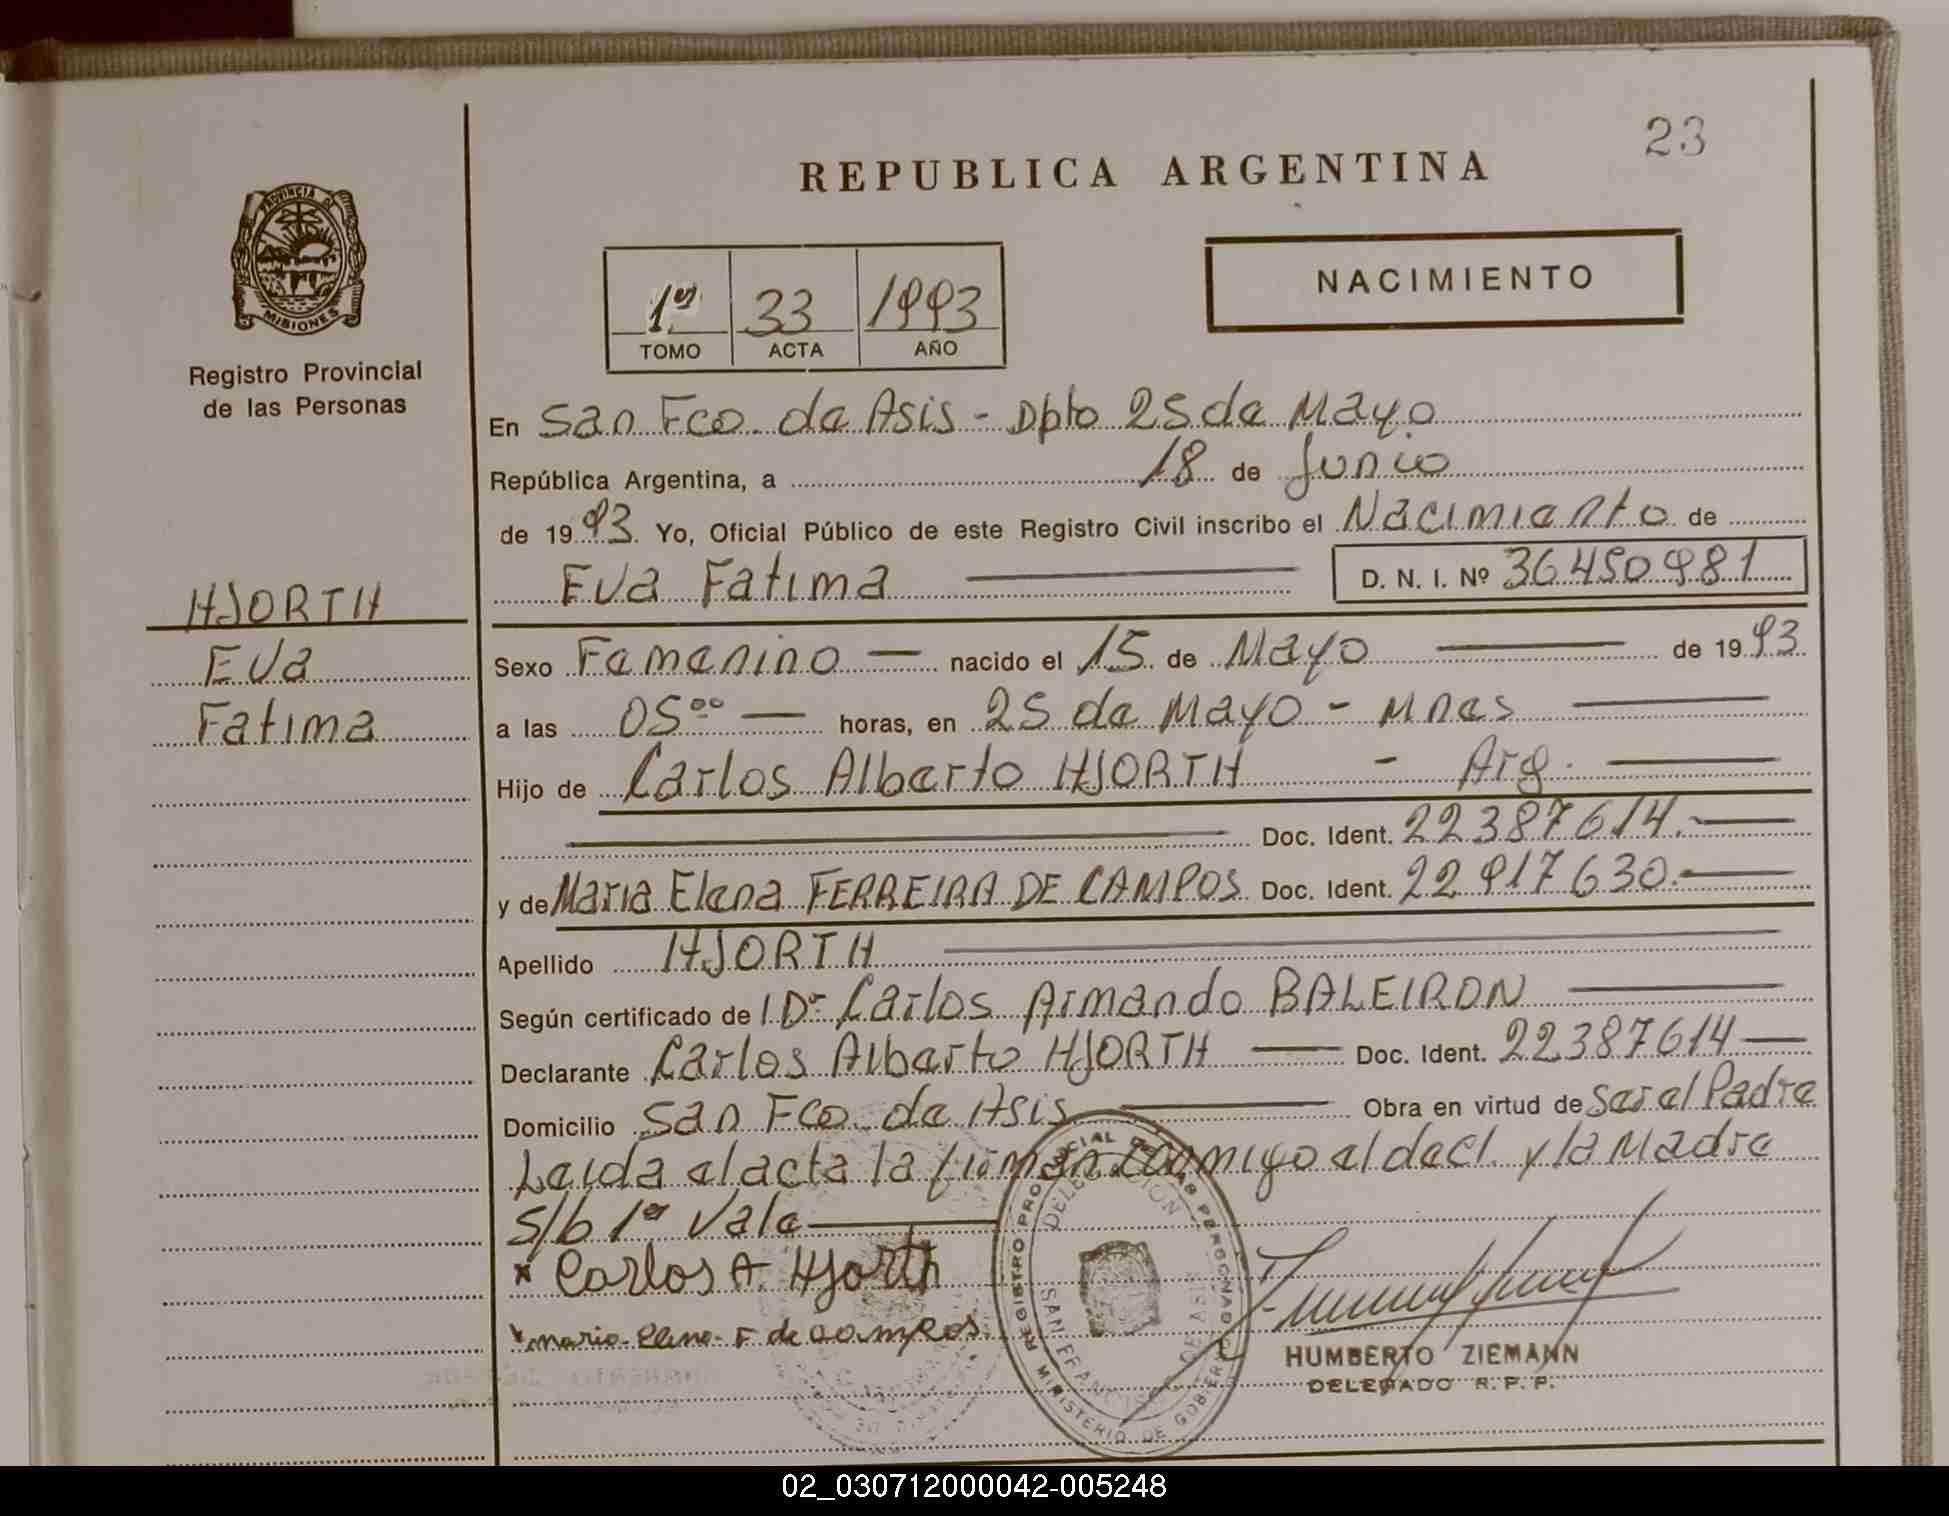 23
REPUBLICA ARGENTINA
PROVINCIA DE
MISIONES
Registro Provincial
de las Personas
1er 33 1993
TOMO ACTA AÑO
NACIMIENTO
En San Fco. de Asis - Dpto 25 de Mayo
República Argentina, a 18 de Junio
de 1993 Yo, Oficial Público de este Registro Civil inscribo el Nacimiento de
Eva Fatima D. N. I. Nº 36450981
HJORTH
Eva
Fatima
Sexo Femenino nacido el 15 de Mayo de 1993
a las 05⁰⁰ horas, en 25 de Mayo - Mnes
Hijo de Carlos Alberto HJORTH - Arg.
Doc. Ident. 22387614.
y de Maria Elena FERREIRA DE CAMPOS Doc. Ident. 22917630.
Apellido HJORTH
Según certificado de l Dr Carlos Armando BALEIRON
Declarante Carlos Alberto HJORTH Doc. Ident. 22387614
Domicilio San Fco. de Asis Obra en virtud de Ser el Padre
Leida el acta la firman conmigo el decl. y la Madre
s/b 1er Vale
x Carlos A. Hjorth
x maria elena F de campos
REGISTRO PROVINCIAL DE LAS PERSONAS
DELEGACION
SAN FRANCISCO DE ASIS
MINISTERIO DE GOBIERNO
HUMBERTO ZIEMANN
DELEGADO R. P. P.
02_030712000042-005248